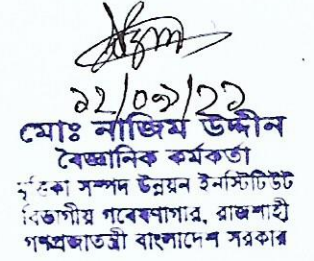 ১২/০৯/২১
মোঃ নাজিম উদ্দীন
বৈজ্ঞানিক কর্মকর্তা
মৃত্তিকা সম্পদ উন্নয়ন ইনস্টিটিউট
বিভাগীয় গবেষণাগার, রাজশাহী
গণপ্রজাতন্ত্রী বাংলাদেশ সরকার